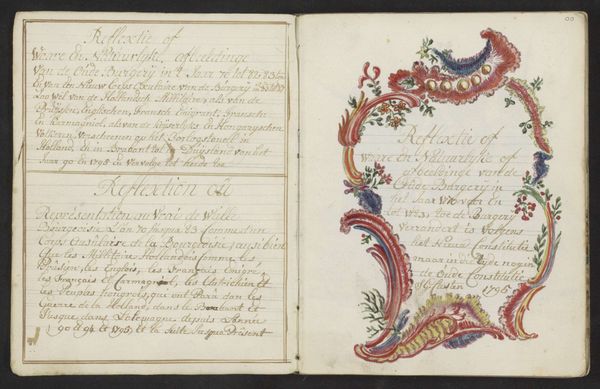 Reflextie of
Waare en Natuurlyke afbeeldinge
van de Oude Burgery in 't Jaar 70 tot 82. 83
En van den Nieuw Corps
van de Burgery
Zoo wel van de Hollandsch Militaire, als van de
Pruijssen, Engelschen, Fransch Emigrant, Franschen
en Karmagniol, als van de Kyserlyke en Hongarysschen
Volkeren, Verscheenen op het Oorlogstoneel in
Holland, en in Braband tot Duijtsland van het
Jaar 90 en 1795 en vervolge tot heede toe
Reflextion ou
Représentation au vraie de
Bourgeoisie L'an 70 jusqua 83 Comme d'un
Corps de la Bourgeoisie, aussi bien
que les Militaire Hollandois Comme les
Prusien, les Englois, les Français Emigré,
les Français et Carmagniol, les Autrichien et
les Peuples Hongrois, que ont Paru dan les
Guerre de la Holland, dans le Brabant et
Jusque dans L'alemagne depuis L'année
90 et 94 et 1795, et la Suite Jusqua Présent
Reflextie of
waare en Natuurlyke of
afbeeldinge van de
Oude Burgery in
het Jaar 1770 van en
tot 1783, toe de Burgery
verandert is Volgens
het Nieuw Constitutie
maar in de Tyde nog in
de Oude Constitutie
1795